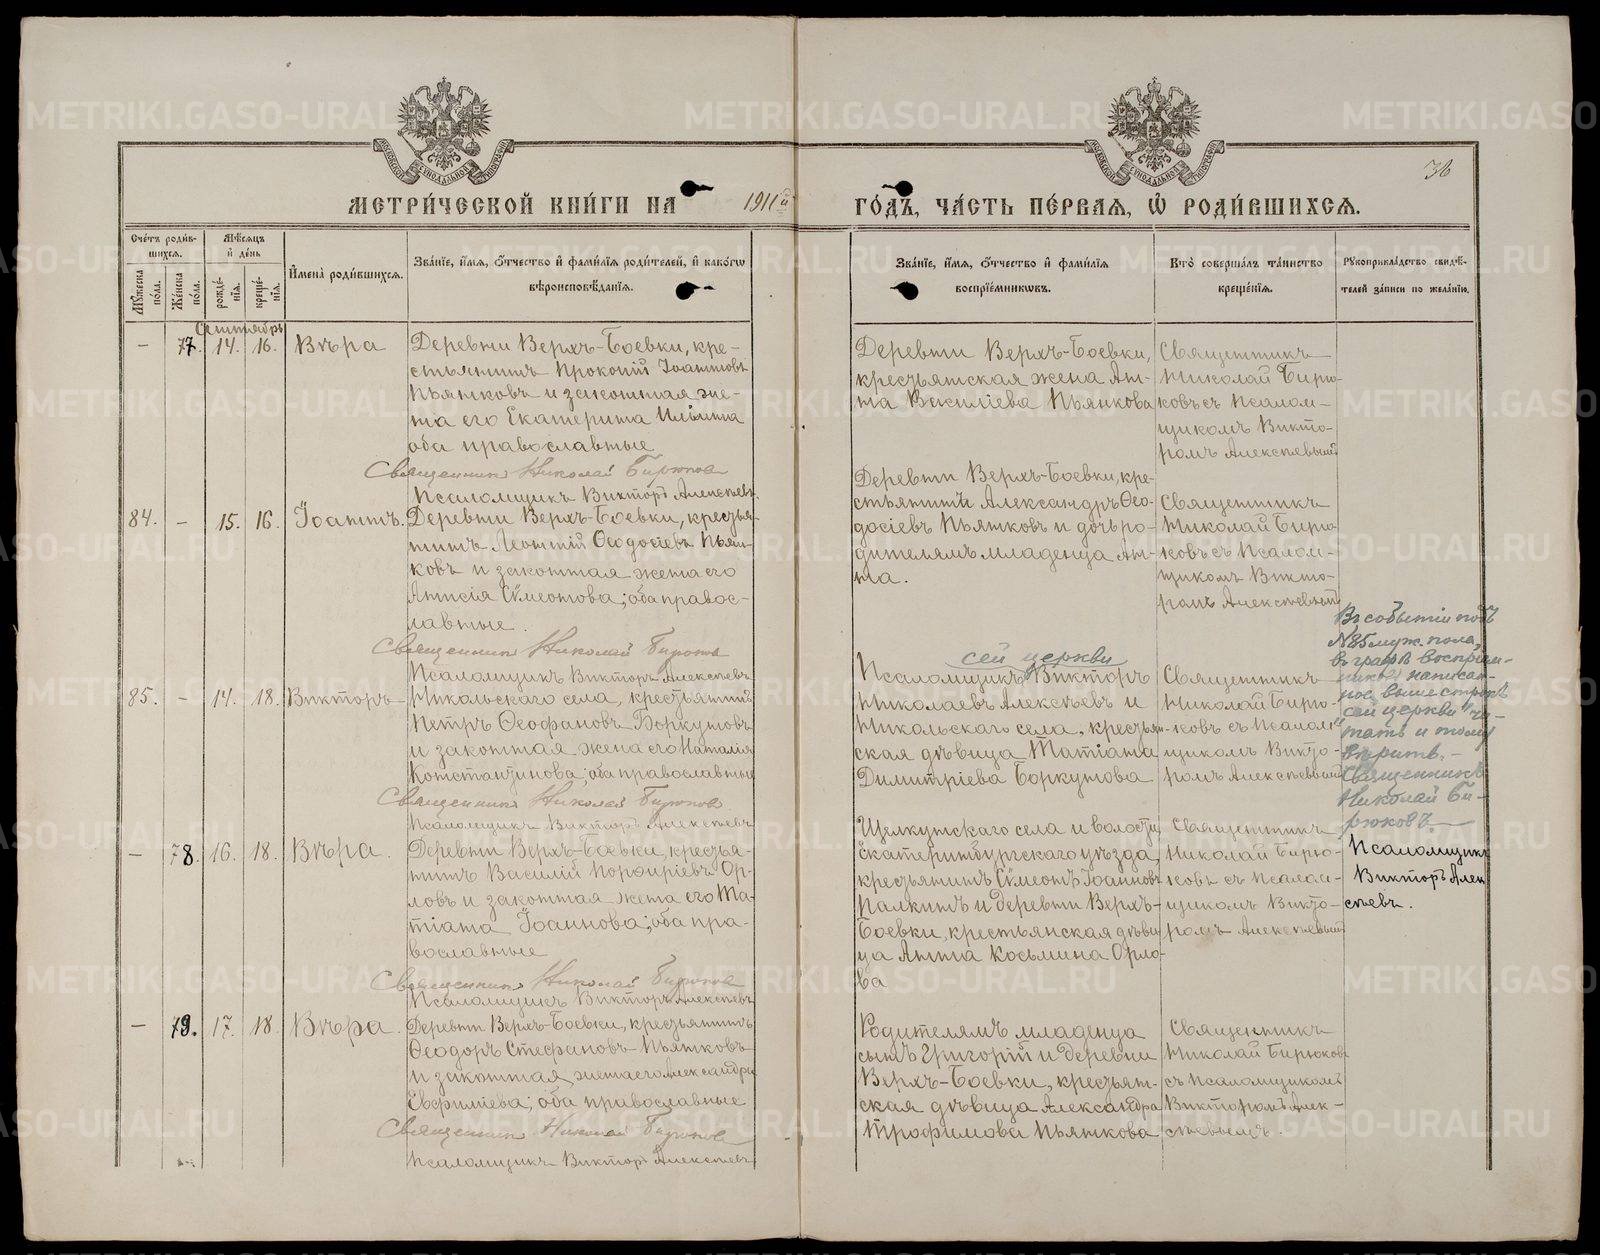 36
МЕТРИ́ЧЕСКОЙ КНИ́ГИ НА 1911й ГО́ДЪ, ЧА́СТЬ ПЕ́РВАЯ, Ѡ РОДИ́ВШИХСЯ.
Сче́тъ роди́в-
шихся.
Мꙋ́жеска по́ла.
Же́нска по́ла.
Мѣ́сяцъ
и҆ де́нь
рожде́-
нїя.
креще́-
нїя.
И҆мена̀ роди́вшихся.
Зва́нїе, и҆́мя, ѻ҆́тчество и҆ фами́лїя роди́телей, и҆ како́гѡ
вѣроисповѣ́данїя.
Зва́нїе, и҆́мя, ѻ҆́тчество и҆ фами́лїя
воспрїе́мникѡвъ.
Кто̀ соверша́лъ та́инство
креще́нїя.
Рꙋкоприкла́дство свидѣ́-
телей за́писи по жела́нїю.
Сентябрь
– 77. 14. 16. Вѣра
Деревни Верхъ-Боевки, кре-
стьянинъ Прокопій Іоанновъ
Пьянковъ и законная же-
на его Екатерина Ильина
оба православные
Священникъ Николай Бирюковъ
Псаломщикъ Викторъ Алексѣевъ.
Деревни Верхъ-Боевки,
крестьянская жена Ан-
на Василіева Пьянкова
Священникъ
Николай Бирю-
ковъ съ псалом-
щикомъ Викто-
ромъ Алексѣевымъ
84. – 15. 16. Іоаннъ.
Деревни Верхъ-Боевки, крестья-
нинъ Леонтій Ѳеодосіевъ Пьян-
ковъ и законная жена его
Анисія Сѵмеонова; оба правос-
лавные.
Священникъ Николай Бирюковъ
Псаломщикъ Викторъ Алексѣевъ
Деревни Верхъ-Боевки, кре-
стьянинъ Александръ Ѳео-
досіевъ Пьянковъ и дочь ро-
дителямъ младенца Ан-
на.
Священникъ
Николай Бирю-
ковъ съ псалом-
щикомъ Викто-
ромъ Алексѣевымъ
85. – 14. 18. Викторъ
Никольскаго села, крестьянинъ
Петръ Ѳеофановъ Боркуновъ
и законная жена его Наталія
Константинова; оба православные
Священникъ Николай Бирюковъ
Псаломщикъ Викторъ Алексѣевъ
сей церкви
Псаломщикъ Викторъ
Николаевъ Алексѣевъ и
Никольскаго села, крестьян-
ская дѣвица Татіана
Димитріева Боркунова
Священникъ
Николай Бирю-
ковъ съ псалом-
щикомъ Викто-
ромъ Алексѣевымъ
Въ событіи подъ
№ 85 муж. пола,
въ графѣ восприем-
никовъ написан-
ное выше строкъ
„сей церкви" чи-
тать и тому
вѣрить. –
Священникъ
Николай Би-
рюковъ. –
Псаломщикъ
Викторъ Алек
сѣевъ.
– 78. 16. 18. Вѣра.
Деревни Верхъ-Боевки, крестья-
нинъ Василій Порфиріевъ Ор-
ловъ и законная жена его Та-
тіана Іоаннова; оба пра-
вославные
Священникъ Николай Бирюковъ
Псаломщикъ Викторъ Алексѣевъ
Щелкунскаго села и волости
Екатеринбургскаго уѣзда,
крестьянинъ Сѵмеонъ Іоанновъ
Палкинъ и деревни Верхъ-
Боевки, крестьянская дѣви
ца Анна Косьмина Орло-
ва
Священникъ
Николай Бирю-
ковъ съ псалом-
щикомъ Викто-
ромъ Алексѣевымъ
– 79. 17. 18. Вѣра.
Деревни Верхъ-Боевки, крестьянинъ
Ѳеодоръ Стефановъ Пьянковъ
и законная жена его Александра
Евфиміева; оба православные
Священникъ Николай Бирюковъ
Псаломщикъ Викторъ Алексѣевъ
Родителямъ младенца
сынъ Григорій и деревни
Верхъ-Боевки, крестьян-
ская дѣвица Александра
Трофимова Пьянкова
Священникъ
Николай Бирюковъ
съ псаломщикомъ
Викторомъ Алек-
сѣевымъ.
METRIKI.GASO-URAL.RU